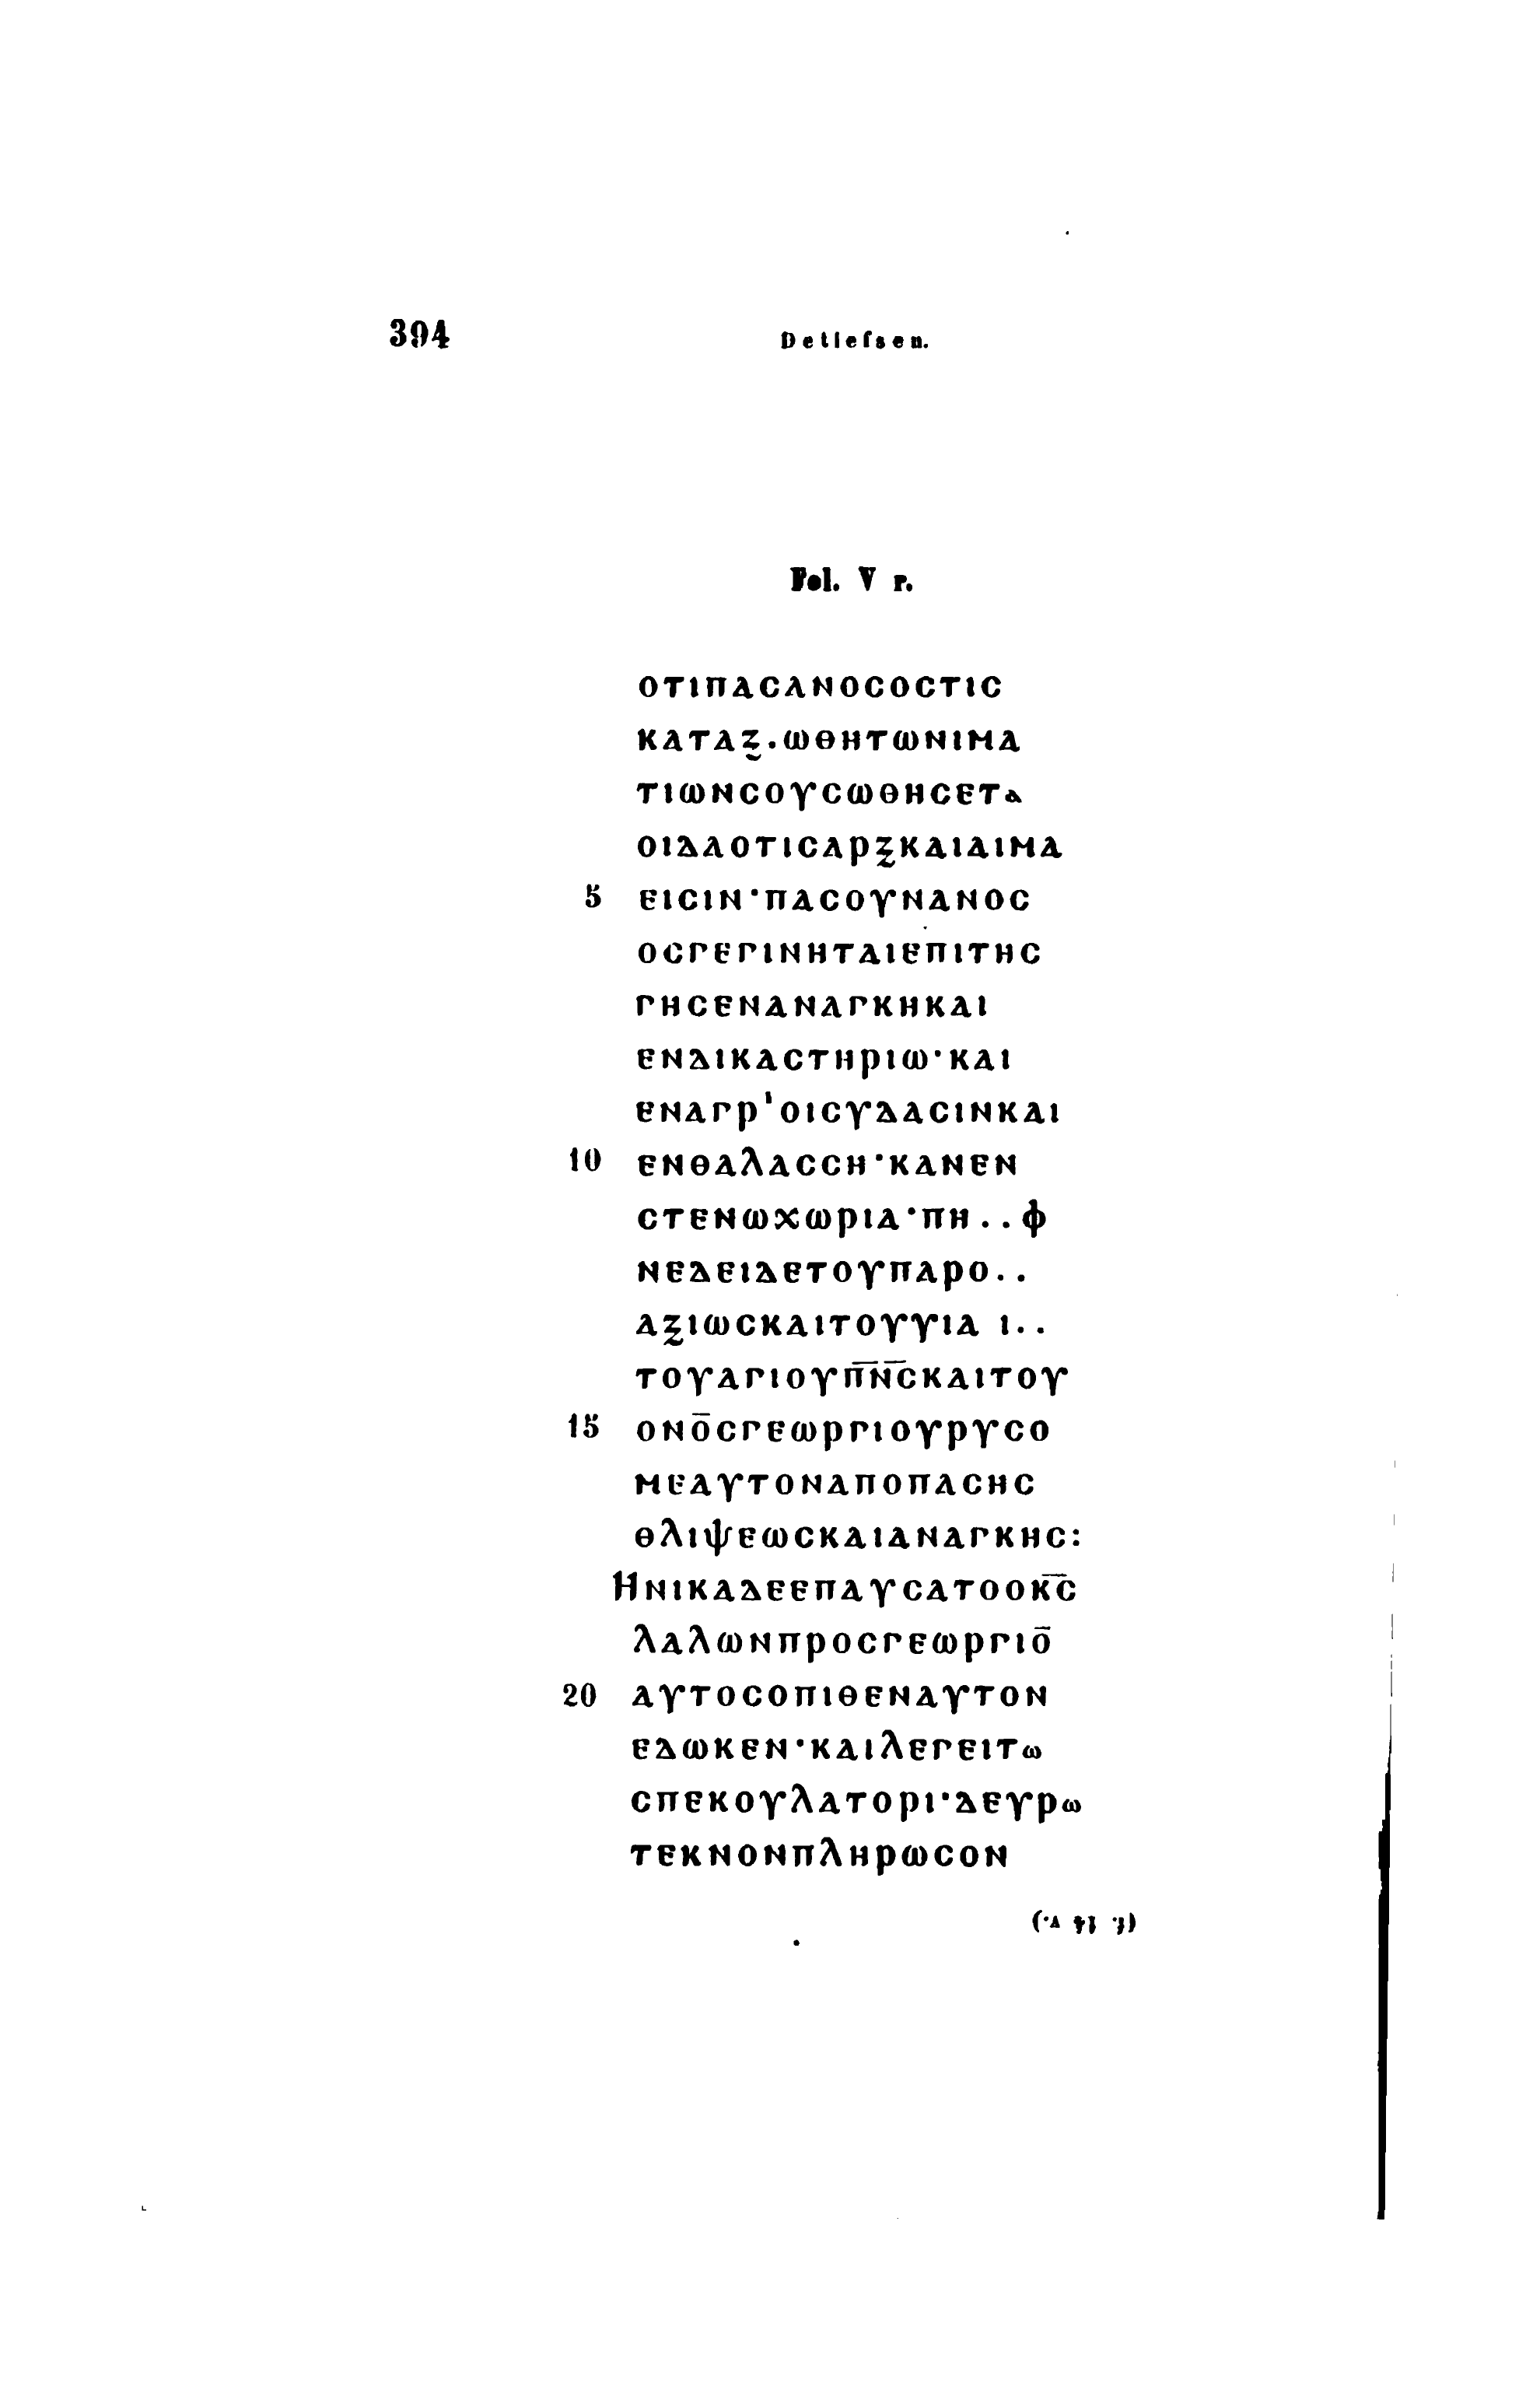 394 Detlefsen.
Fol. V r.
ΟΤΙΠΑCΑΝΟCΟCΤΙC
ΚΑΤΑΞ.ΩΘΗΤΩΝΙΜΑ
ΤΙΩΝCΟΥCΩΘΗCΕΤΑ
ΟΙΔΑΟΤΙCΑΡΞΚΑΙΑΙΜΑ
5 ΕΙCΙΝ·ΠΑCΟΥΝΑΝΟC
ΟCΓΕΓΙΝΗΤΑΙΕΠΙΤΗC
ΓΗCΕΝΑΝΑΓΚΗΚΑΙ
ΕΝΔΙΚΑCΤΗΡΙΩ·ΚΑΙ
ΕΝΑΓΡ'ΟΙCΥΔΑCΙΝΚΑΙ
10 ΕΝΘΑΛΑCCΗ·ΚΑΝΕΝ
CΤΕΝΩΧΩΡΙΑ·ΠΗ..Φ
ΝΕΔΕΙΔΕΤΟΥΠΑΡΟ..
ΑΞΙΩCΚΑΙΤΟΥΥΙΑ Ι..
ΤΟΥΑΓΙΟΥΠ̅Ν̅C̅ΚΑΙΤΟΥ
15 ΟΝΟ̅CΓΕΩΡΓΙΟΥΡΥCΟ
ΜΕΑΥΤΟΝΑΠΟΠΑCΗC
ΘΛΙΨΕΩCΚΑΙΑΝΑΓΚΗC:
ΗΝΙΚΑΔΕΕΠΑΥCΑΤΟΟΚ̅C̅
ΛΑΛΩΝΠΡΟCΓΕΩΡΓΙΟ̅
20 ΑΥΤΟCΟΠΙΘΕΝΑΥΤΟΝ
ΕΔΩΚΕΝ·ΚΑΙΛΕΓΕΙΤΩ
CΠΕΚΟΥΛΑΤΟΡΙ·ΔΕΥΡΩ
ΤΕΚΝΟΝΠΛΗΡΩCΟΝ